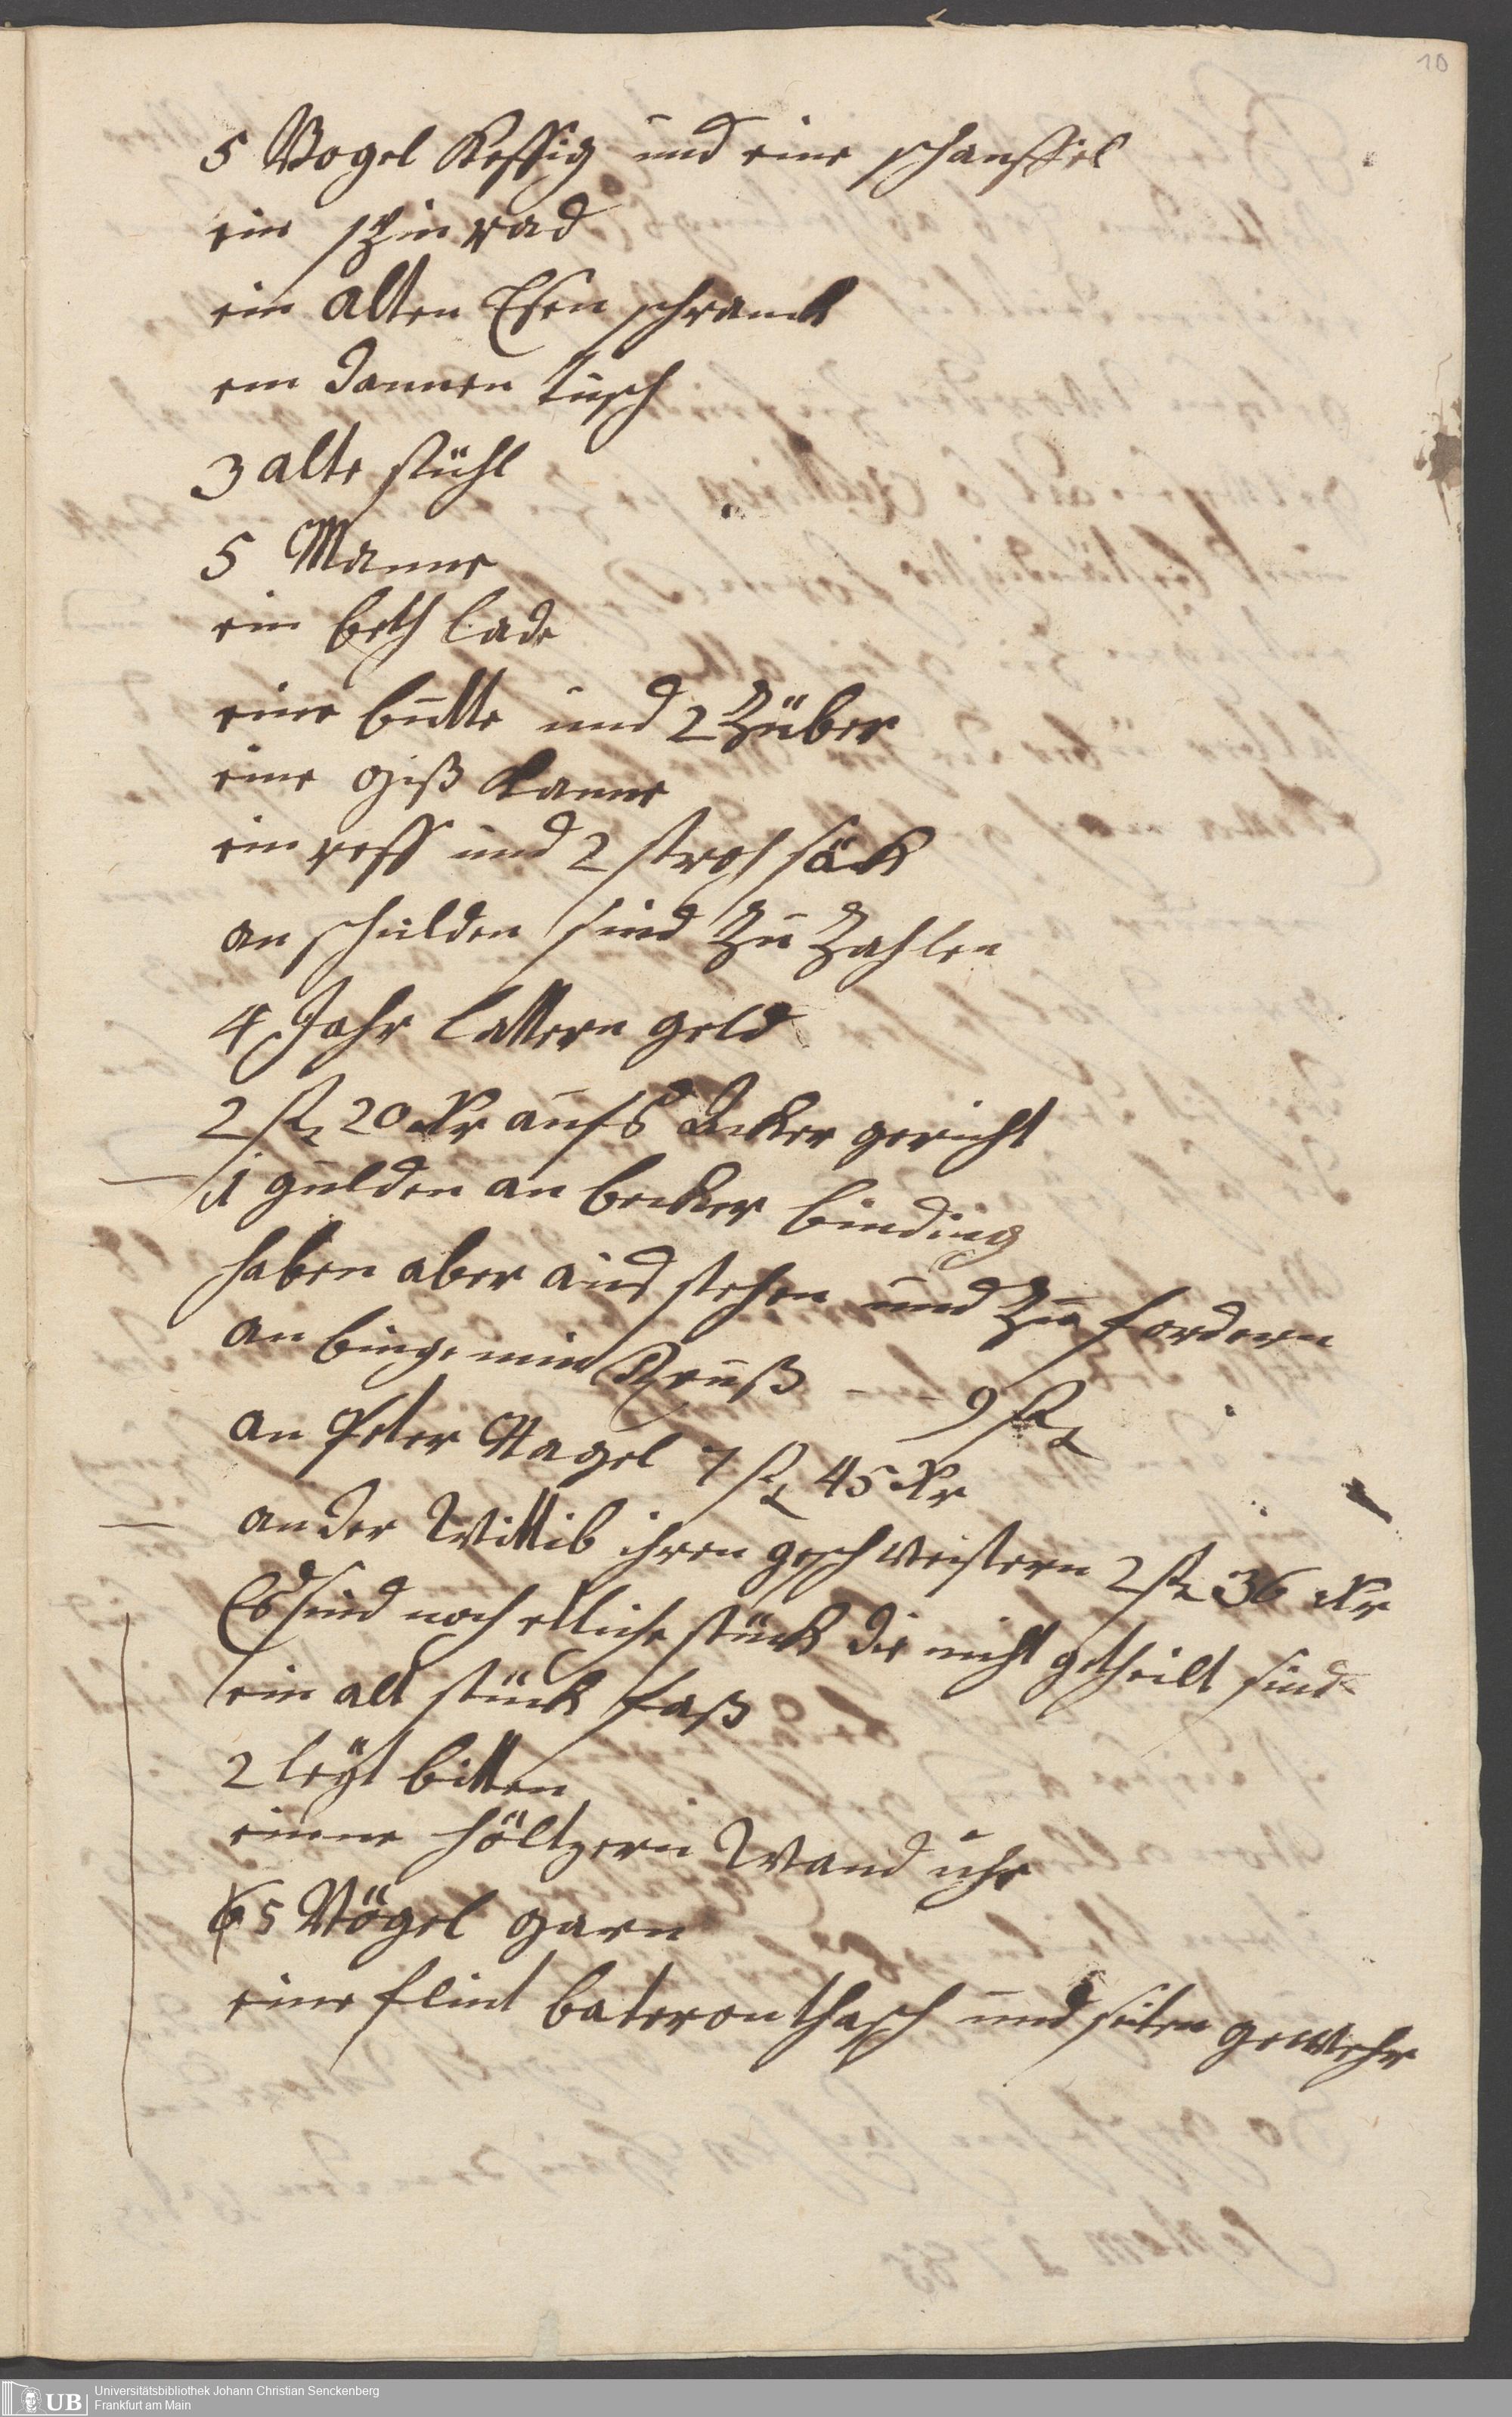 10
5 Vogel Keffig und eine schauffel
ein spin rad
ein alten Esen schranck
ein Dannen tisch
3 alte stühl
5 Manne
ein beth lade
eine bütte und 2 Züber
eine giß kanne
ein reff und 2 stroh säck
an schulden sind Zu Zahlen
4 Jahr lattern geld
2 fl 20 Kr aufs Acker gericht
1 gulden an becker binding
haben aber aus stehen und Zu fordern
an bingemin Preuß - - 9 fl
an Peter Nagel 7 fl 45 Kr
an der Wittib ihren geschweistern 2 fl 36 Kr
Es sind noch etliche stück die nicht getheilt sind
ein alt stück faß
2 leyt bitten
einne höltzern Wand uhr
5 Vögel garn
eine flint baterонthasch und siten gewehr
UB Universitätsbibliothek Johann Christian Senckenberg
Frankfurt am Main